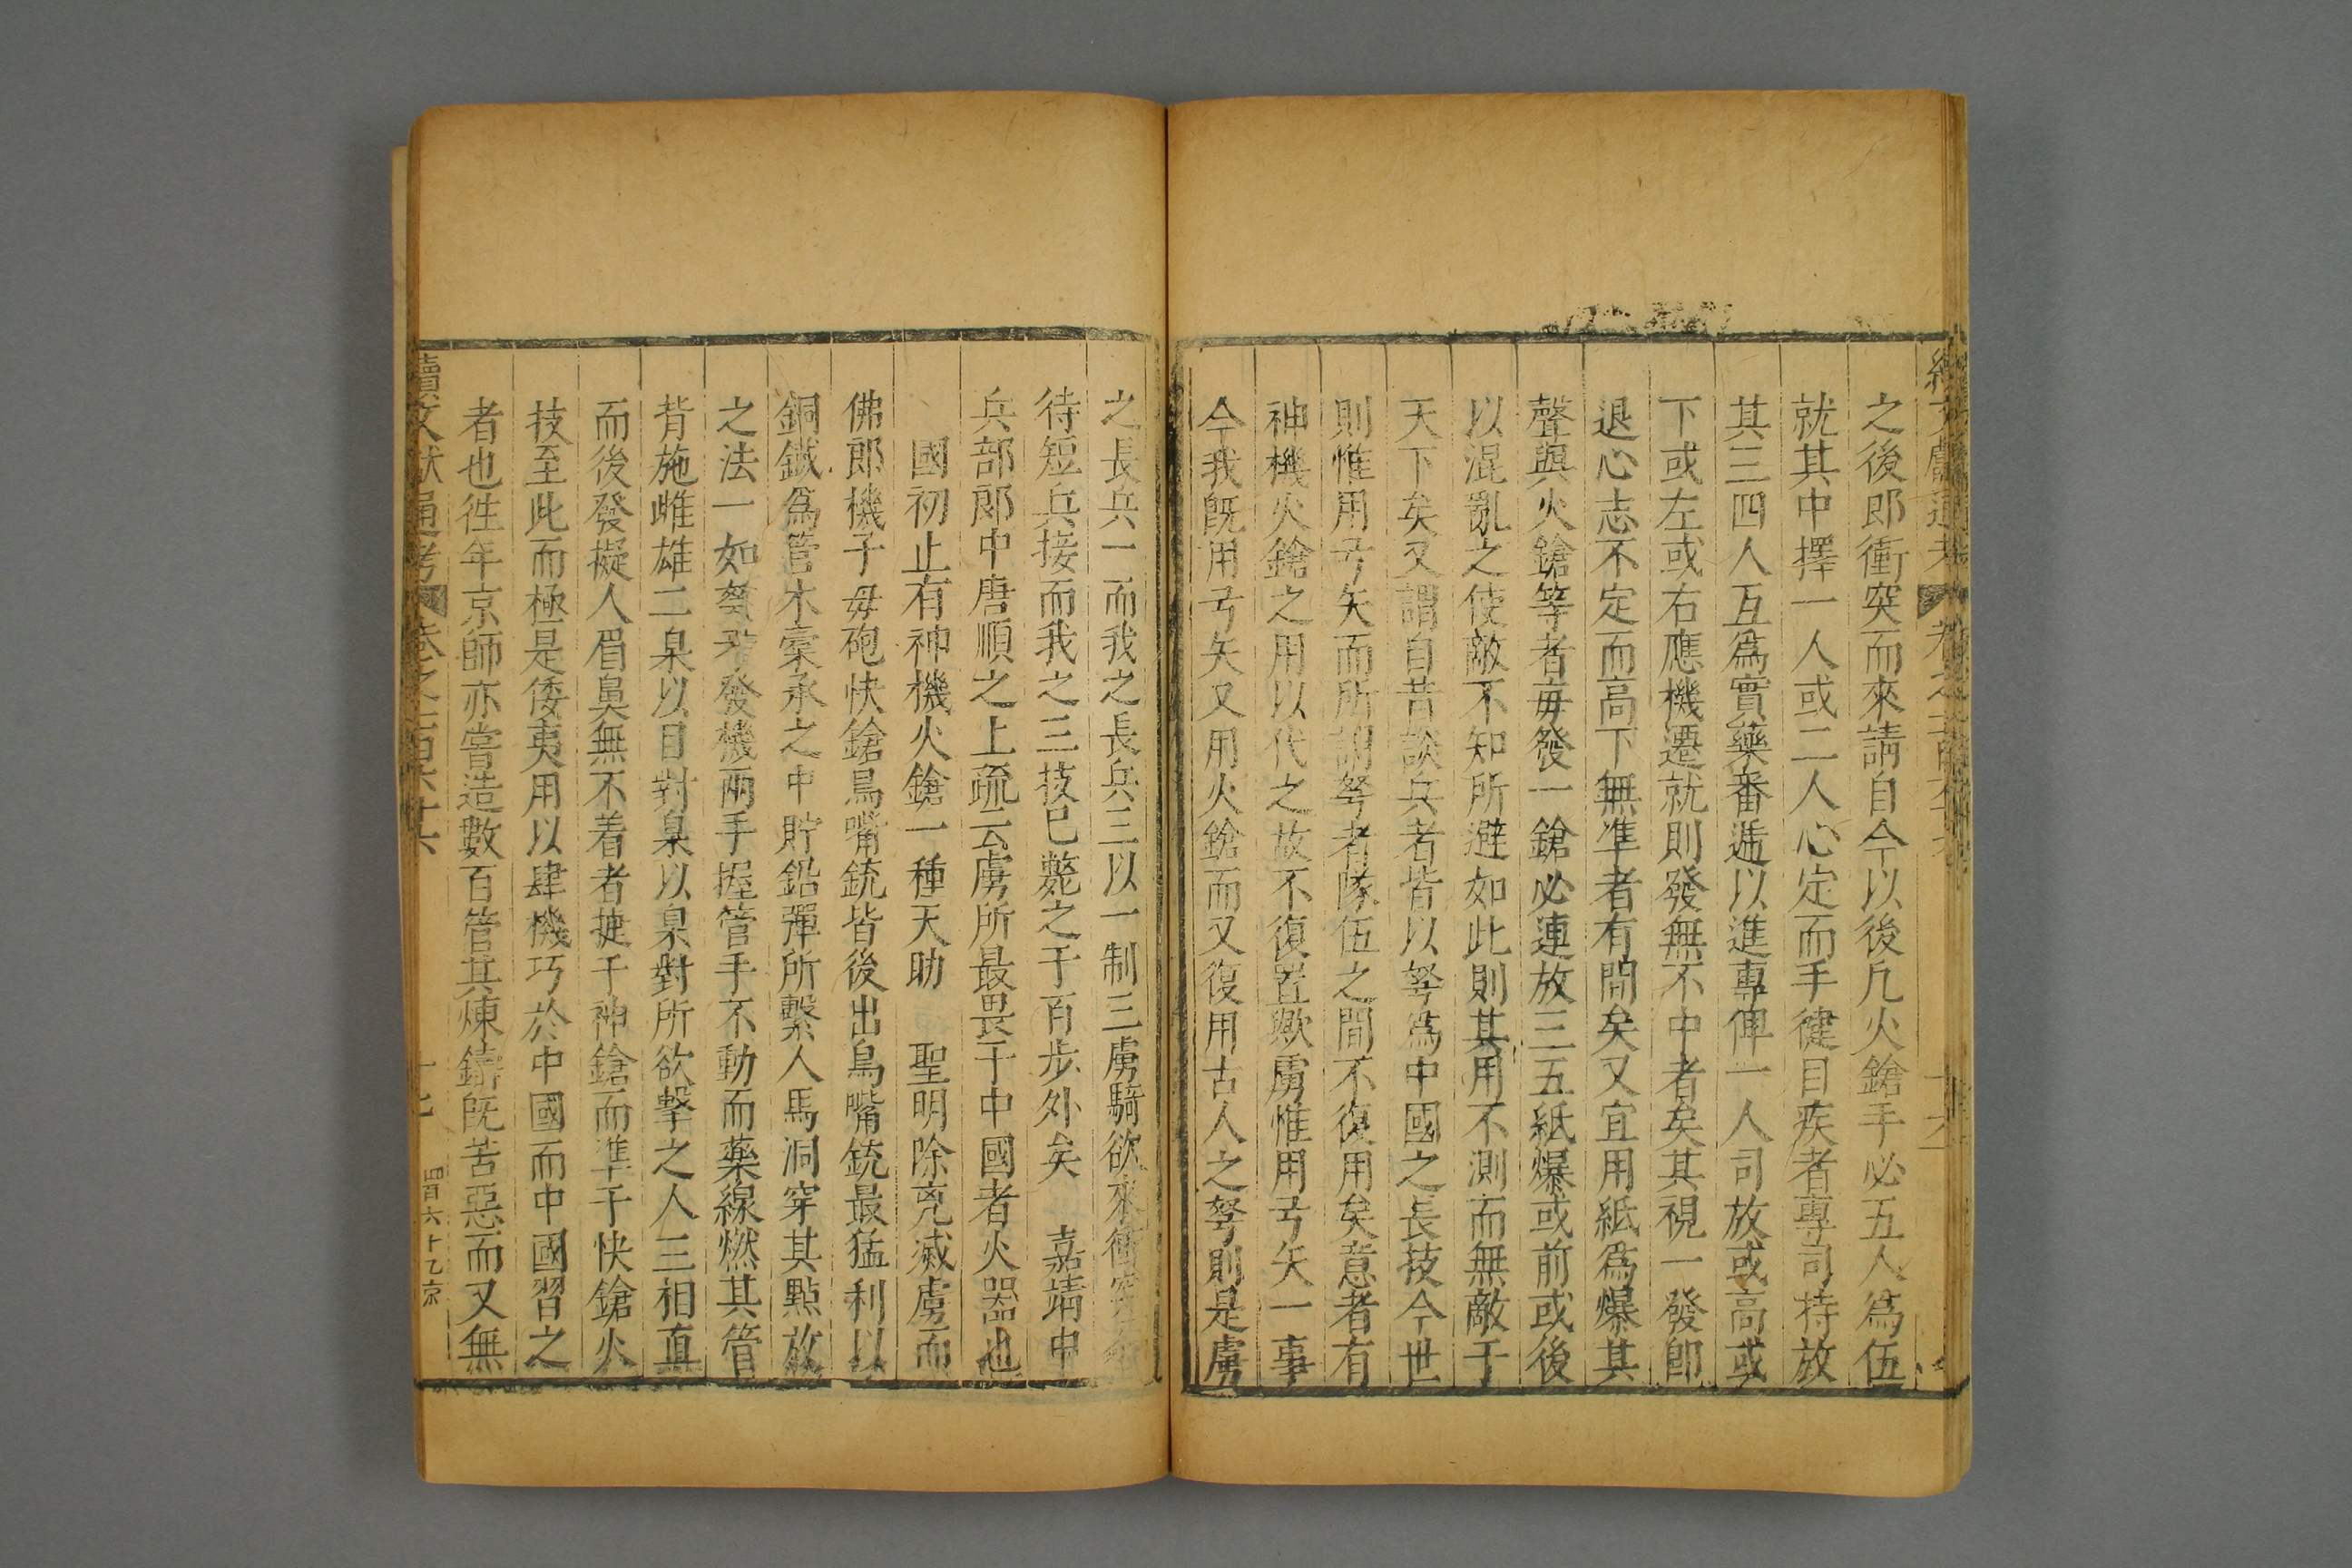 之後即衝突而來請自今以後凡火鎗手必五人爲伍
就其中擇一人或二人心定而手徤目疾者專司持放
其三四人互爲實藥番遞以進專俾一人司放或高或
下或左或右應機遷就則發無不中者矣其視一發即
退心志不定而高下無準者有間矣又宜用紙爲爆其
聲與火鎗等者每發一鎗必連放三五紙爆或前或後
以混亂之使敵不知所避如此則其用不測而無敵于
天下矣又謂自昔談兵者皆以弩爲中國之長技今世
則惟用弓矢而所謂弩者隊伍之間不復用矣意者有
神機火鎗之用以代之故不復置歟虜惟用弓矢一事
今我旣用弓矢又用火鎗而又復用古人之弩則是虜
之長兵一而我之長兵三以一制三虜騎欲來衝突
待短兵接而我之三技已斃之于百步外矣 嘉靖中
兵部郎中唐順之上疏云虜所最畏于中國者火器也
國初止有神機火鎗一種天助 聖明除兇滅虜而
佛郎機子母砲快鎗鳥嘴銃皆後出鳥嘴銃最猛利以
銅鐵爲管木橐承之中貯鉛彈所擊人馬洞穿其點放
之法一如弩牙發機兩手握管手不動而藥線燃其管
背施雌雄二臬以目對臬以臬對所欲擊之人三相直
而後發擬人眉鼻無不着者捷于神鎗而準于快鎗火
技至此而極是倭夷用以肆機巧於中國而中國習之
者也徃年京師亦嘗造數百管其煉鑄旣苦惡而又無
續文獻通考 卷之一百六十六 十七 四百六十乙 宗